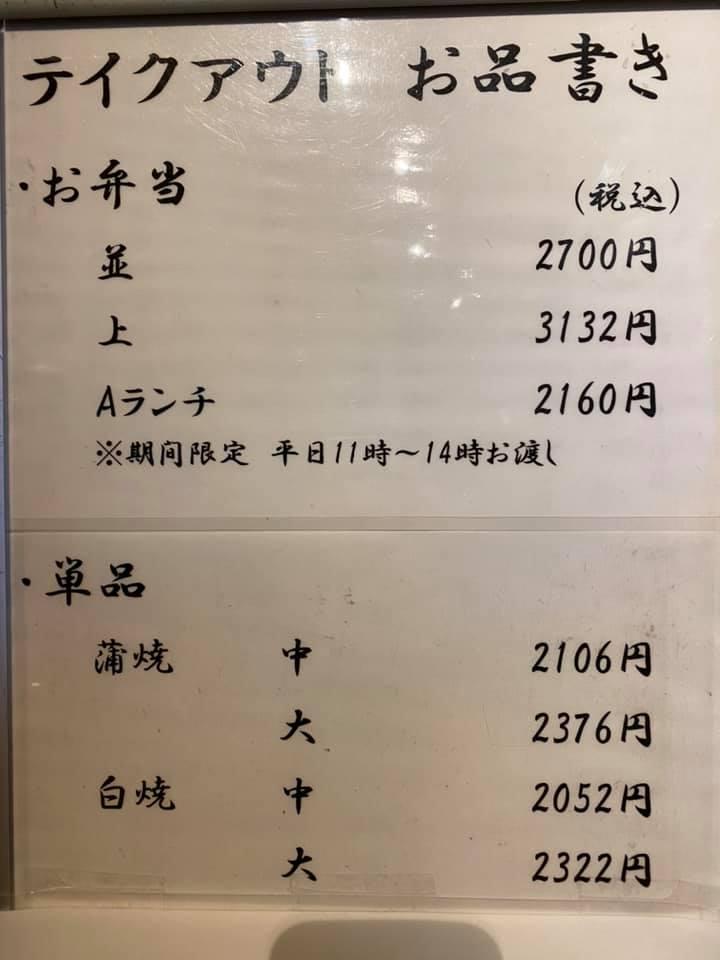 テイクアウト お品書き
・お弁当 (税込)
並 2700円
上 3132円
Aランチ 2160円
※期間限定 平日11時〜14時お渡し
・単品
蒲焼 中 2106円
大 2376円
白焼 中 2052円
大 2322円